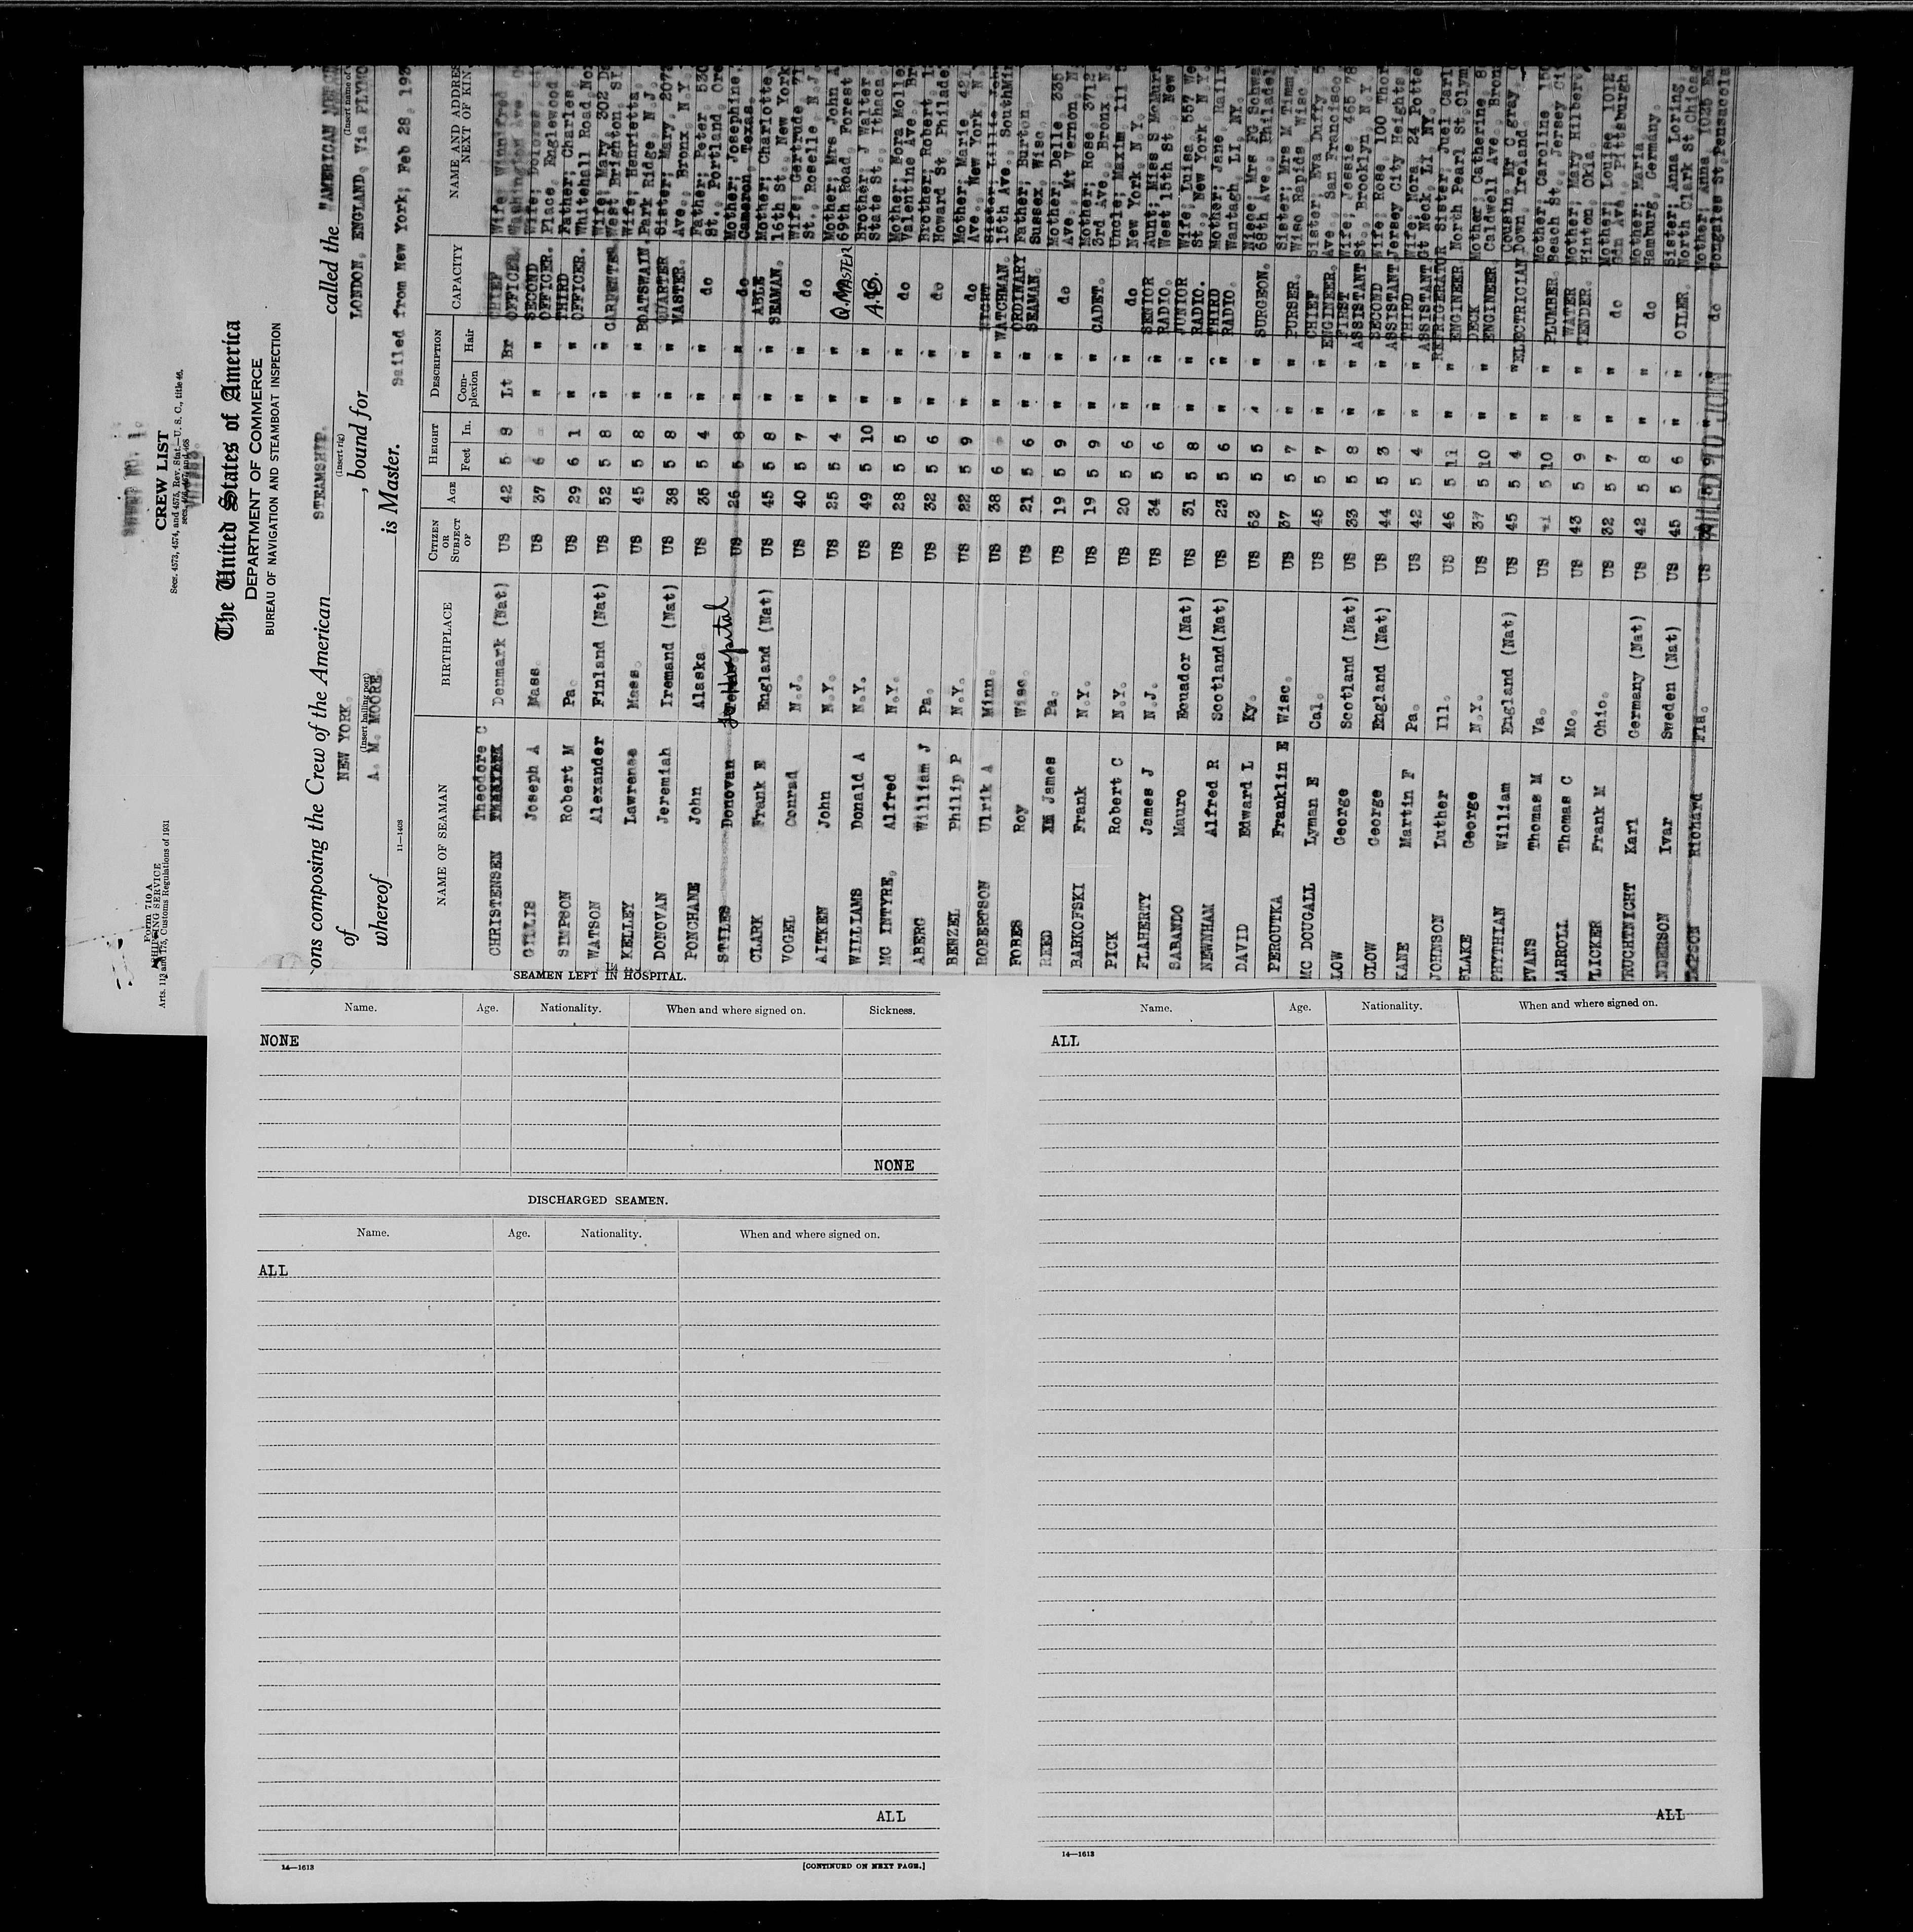 Form 710 A
SHIPPING SERVICE
Arts. 113 and 175, Customs Regulations of 1931
SHEET NO. 1.
CREW LIST
Secs. 4573, 4574, and 4575, Rev. Stat.—U. S. C., title 46,
The United States of America
DEPARTMENT OF COMMERCE
BUREAU OF NAVIGATION AND STEAMBOAT INSPECTION
ons composing the Crew of the American STEAMSHIP. called the "AMERICAN
(Insert rig) (Insert name of
of NEW YORK. , bound for LONDON, ENGLAND, Via PLYMO
(Insert hailing port)
whereof A. M. MOORE is Master. Sailed from New York; Feb 28, 193
11—1408
NAME OF SEAMAN BIRTHPLACE CITIZEN OR SUBJECT OF AGE HEIGHT Feet In. DESCRIPTION Complexion Hair CAPACITY NAME AND ADDRES NEXT OF KIN
CHRISTENSEN Theodore C Denmark (Nat) US 42 5 8 Lt Br CHIEF OFFICER. Wife; Winnifred Washington Ave
GILLIS Joseph A Mass. US 37 6 " " SECOND OFFICER. Wife; Dolores, Place, Englewood
SIMPSON Robert M Pa. US 29 6 1 " " THIRD OFFICER. Father; Charles Whitehall Road, Nor
WATSON Alexander Finland (Nat) US 52 5 8 " " CARPENTER. Wife; Mary, 302 De West Brighton, SI
KELLEY Lawrense Mass. US 45 5 8 " " BOATSWAIN. Wife; Henrietta, Park Ridge, N.J.
DONOVAN Jeremiah Iremand (Nat) US 38 5 8 " " QUARTER MASTER. Sister; Mary, 2072 Ave., Bronx, N.Y.
PONCHANE John Alaska. US 35 5 4 " " do Father; Peter, 530 St., Portland, Ore
STILES Donovan Hospital US 26 5 8 " " do Mother; Josephine, Cameron, Texas.
CLARK Frank E England (Nat) US 45 5 8 " " ABLE SEAMAN. Mother; Charlotte, 16th St., New York
VOGEL Conrad N.J. US 40 5 7 " " do Wife; Gertrude, 71 St., Roselle, N.J.
AITKEN John N.Y. US 25 5 4 " " Q.MASTER Mother; Mrs John A 69th Road, Forest
WILLIAMS Donald A N.Y. US 49 5 10 " " A.B. Brother; J Walter, State St., Ithaca,
MC INTYRE, Alfred N.Y. US 28 5 5 " " do Mother; Nora Molle Valentine Ave., Br
ABERG William J Pa. US 32 5 6 " " do Brother; Robert, 1 Howard St., Philade
BENZEL Philip P N.Y. US 22 5 9 " " do Mother; Marie, 421 Ave., New York, N
ROBERTSON Ulrik A Minn. US 38 6 " " NIGHT WATCHMAN. Sister; 15th Ave., SouthMin
FOBES Roy Wisc. US 21 5 6 " " ORDINARY SEAMAN. Father; Burton, Sussex, Wisc.
REED James Pa. US 19 5 9 " " do Mother; Delle, 335 Ave., Mt Vernon, N
BARKOFSKI Frank N.Y. US 19 5 9 " " CADET. Mother; Rose, 3712 3rd Ave., Bronx, N
PICK Robert C N.Y. US 20 5 6 " " do Uncle; Maxim, 111 New York, N.Y.
FLAHERTY James J N.J. US 34 5 6 " " SENIOR RADIO. Aunt; Miss S McMurr West 15th St., New
SABANDO Mauro Ecuador (Nat) US 31 5 8 " " JUNIOR RADIO. Wife; Luisa, 557 We St., New York, N.Y.
NEWNHAM Alfred R Scotland(Nat) US 23 5 6 " " THIRD RADIO. Mother; Jane, Rail Wantagh, LI, NY.
DAVID Edward L Ky. US 63 5 5 " " SURGEON. Niece; Mrs FG Schwa 68th Ave., Philadel
PEROUTKA Franklin E Wisc. US 37 5 7 " " PURSER. Sister; Mrs M Timm, Wisc Rapids, Wisc.
MC DOUGALL Lyman E Cal. US 45 5 7 " " CHIEF ENGINEER. Sister; Eva Duffy, 5 Ave., San Francisco
LOW George Scotland (Nat) US 33 5 8 " " FIRST ASSISTANT Wife; Jessie, 465 78 St., Brooklyn, N.Y.
CLOW George England (Nat) US 44 5 3 " " SECOND ASSISTANT Wife; Rose, 100 Thor Jersey City Heights
KANE Martin F Pa. US 42 5 4 " " THIRD ASSISTANT Wife; Nora, 24 Potte Gt Neck, LI, NY.
JOHNSON Luther Ill. US 46 5 11 " " REFRIGERATOR ENGINEER. Sister; Juel Carl North Pearl St., Olym
BLAKE George N.Y. US 37 5 10 " " DECK ENGINEER. Mother; Catherine, 8 Caldwell Ave., Bron
PHYTHIAN William England (Nat) US 45 5 4 " " ELECTRICIAN. Cousin; Mr C gray, Down, Ireland.
EVANS Thomas M Va. US 41 5 10 " " PLUMBER. Mother; Caroline, 150 Beach St., Jersey Ci
CARROLL Thomas C Mo. US 43 5 9 " " WATER TENDER. Mother; Mary Hilbert, Hinton, Okla.
LICKER Frank M Ohio. US 32 5 7 " " do Mother; Louise, 1012 Ave., Pittsburgh
RUCHTNICHT Karl Germany (Nat) US 42 5 8 " " do Mother; Maria, Hamburg, Germany.
NDERSON Ivar Sweden (Nat) US 45 5 6 " " OILER. Sister; Anna Loring, North Clark St, Chicag
Richard Fla. US " " do Mother; Anna, 1025 Ea Gonzales St, Pensacola
SEAMEN LEFT IN HOSPITAL.
Name. Age. Nationality. When and where signed on. Sickness.
NONE
NONE
DISCHARGED SEAMEN.
Name. Age. Nationality. When and where signed on.
ALL
ALL
14—1613 [CONTINUED ON NEXT PAGE.]
Name. Age. Nationality. When and where signed on.
ALL
ALL
14—1613